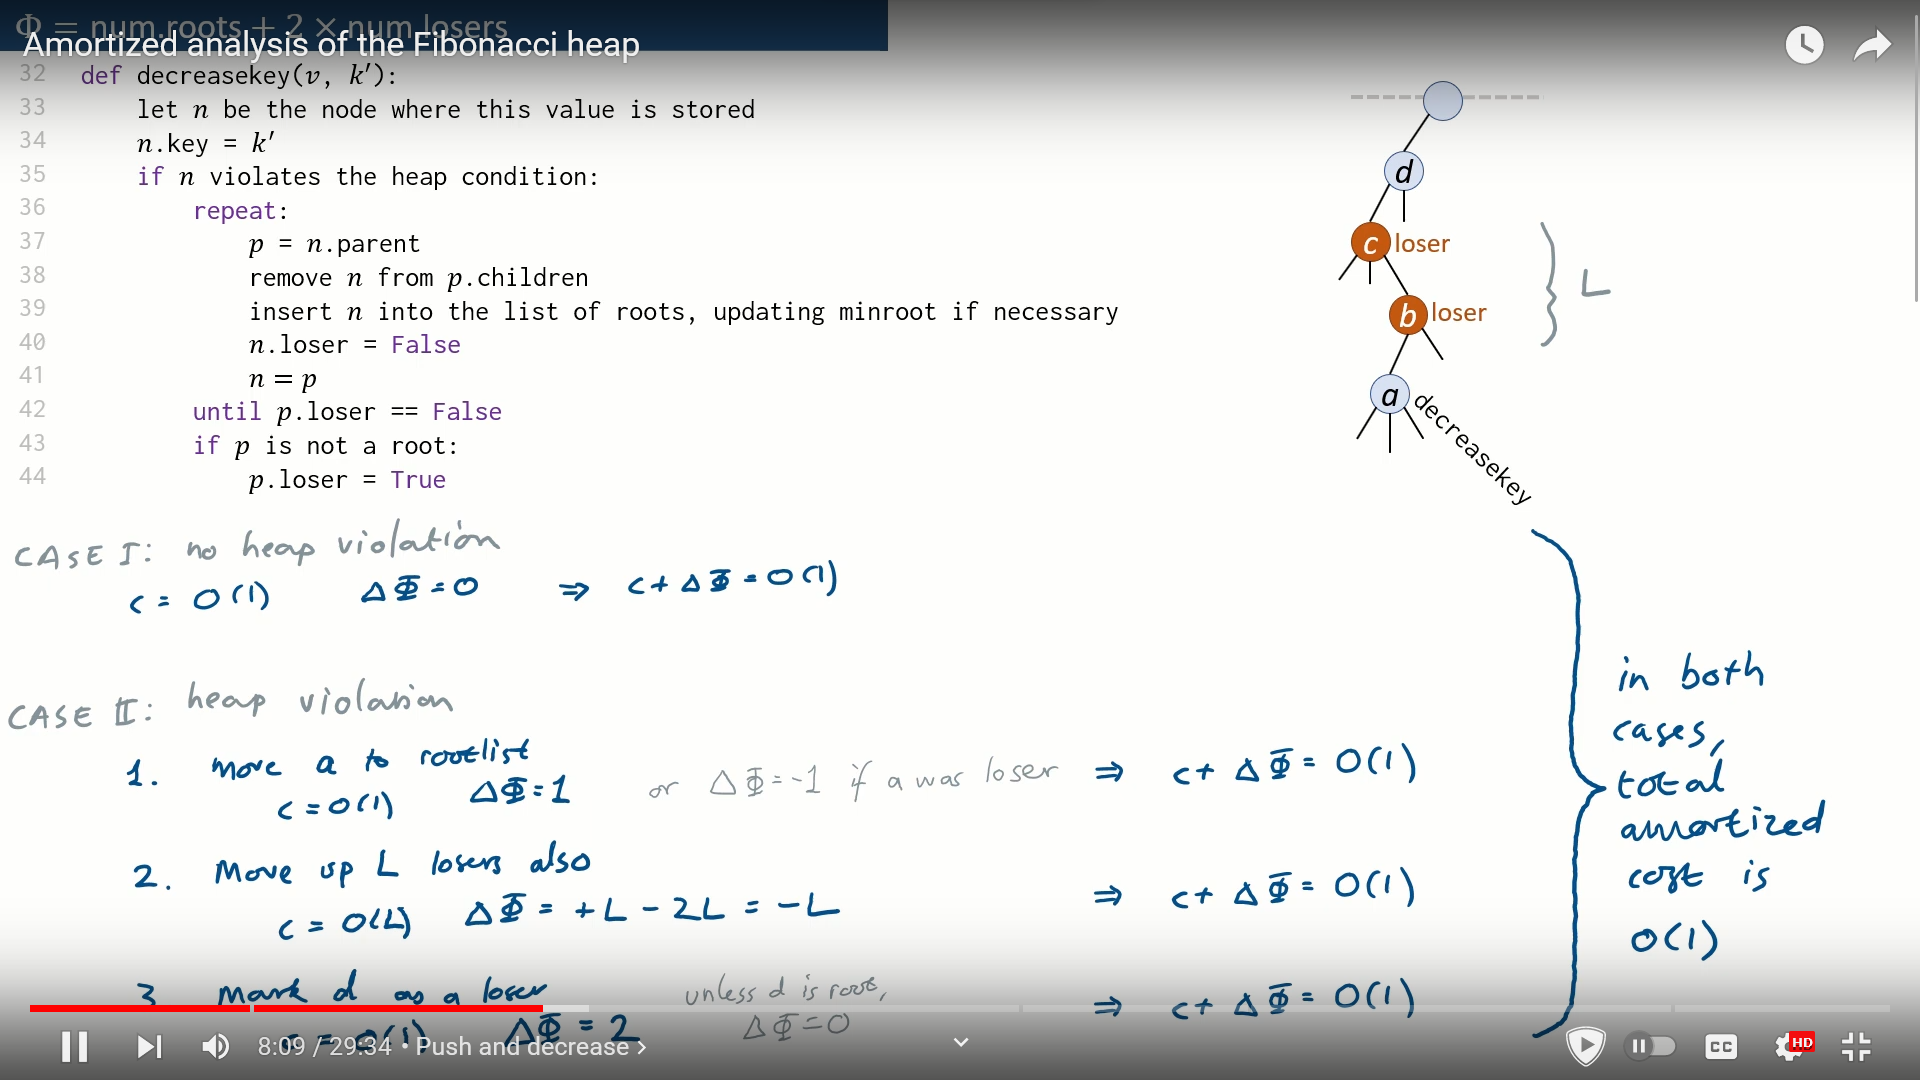 Φ = num.roots + 2 × num.losers
Amortized analysis of the Fibonacci heap
32 def decreasekey(v, k′):
33 let n be the node where this value is stored
34 n.key = k′
35 if n violates the heap condition:
36 repeat:
37 p = n.parent
38 remove n from p.children
39 insert n into the list of roots, updating minroot if necessary
40 n.loser = False
41 n = p
42 until p.loser == False
43 if p is not a root:
44 p.loser = True
d
c loser
L
b loser
a decreasekey
CASE I: no heap violation
c = O(1) ΔΦ = 0 ⇒ c + ΔΦ = O(1)
CASE II: heap violation
1. Move a to rootlist
c = O(1) ΔΦ = 1 or ΔΦ = -1 if a was loser ⇒ c + ΔΦ = O(1)
2. Move up L losers also
c = O(L) ΔΦ = +L - 2L = -L ⇒ c + ΔΦ = O(1)
3 Mark d as a loser unless d is root,
c = O(1) ΔΦ = 2 ΔΦ = 0 ⇒ c + ΔΦ = O(1)
in both
cases,
total
amortized
cost is
O(1)
8:09 / 29:34 • Push and decrease >
CC
HD